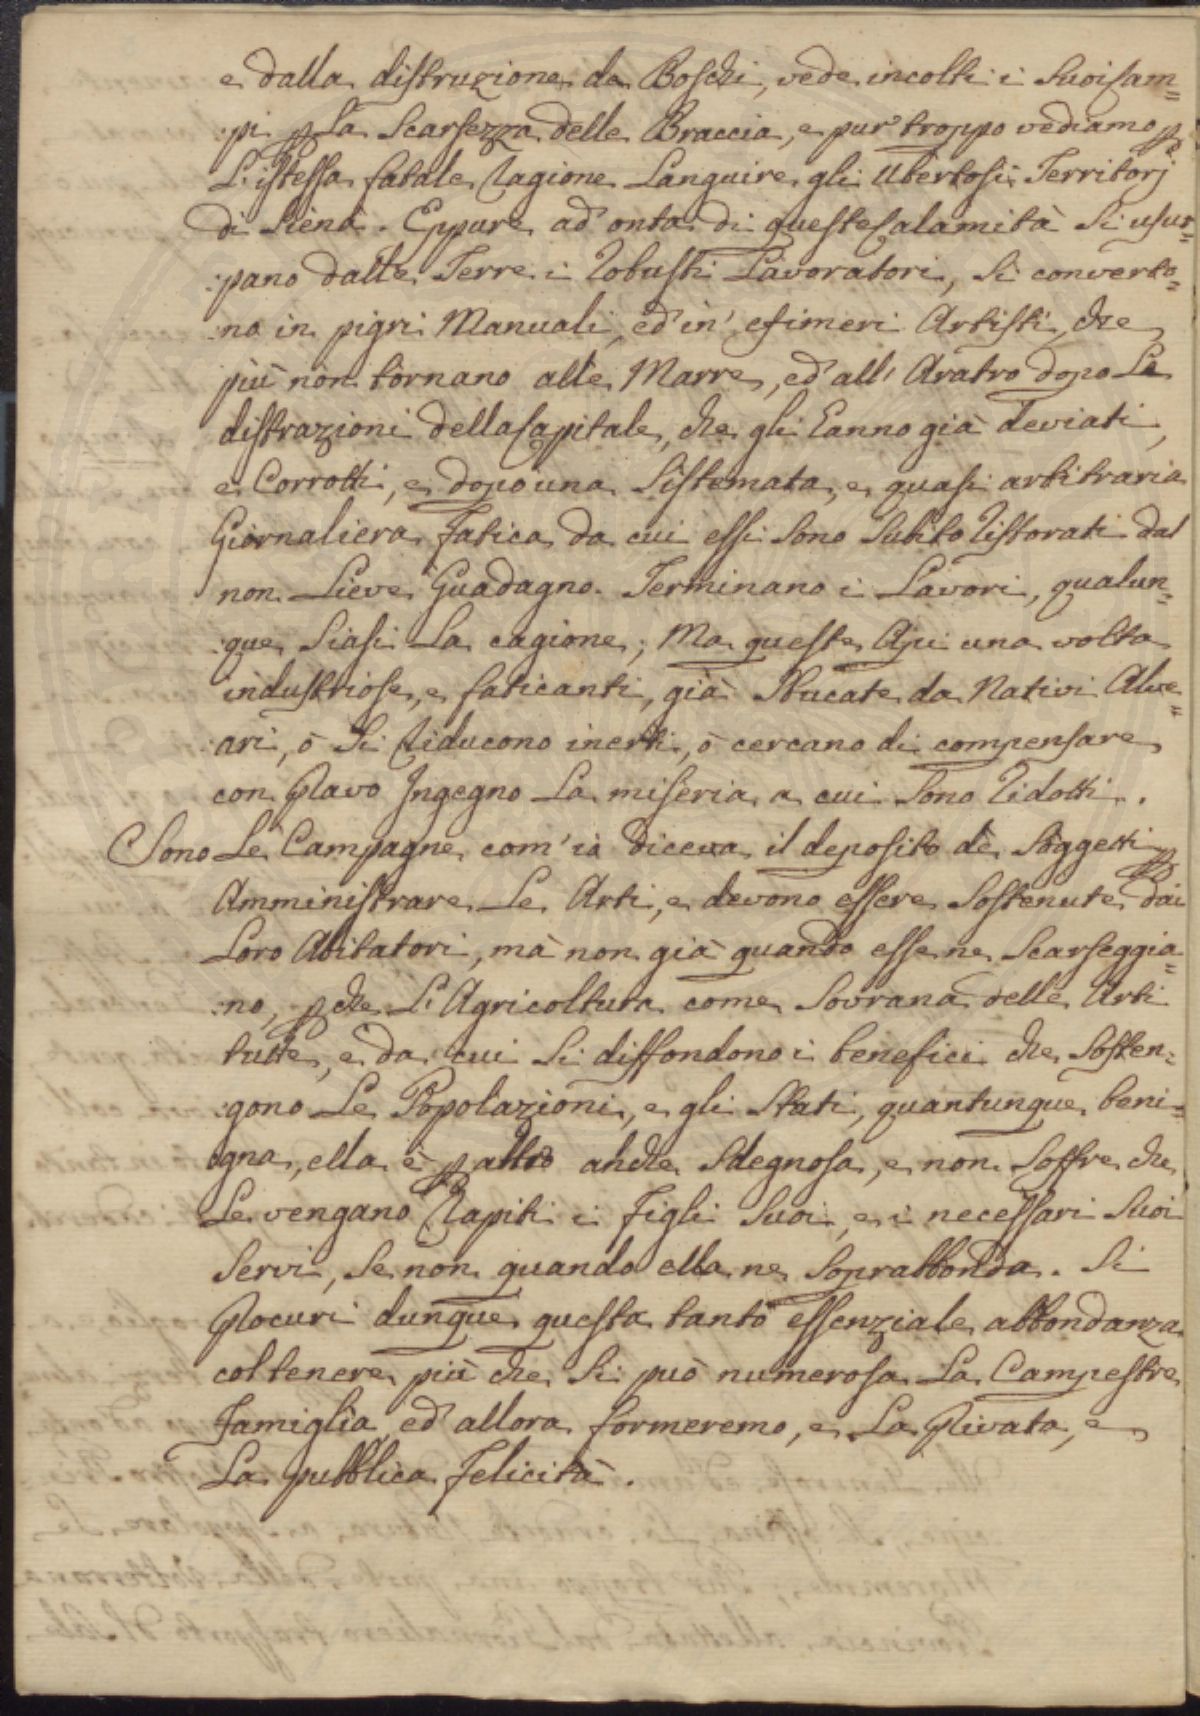 e dalla distruzione de Boschi, vede incolti i Suoi Cam=
:pi p La Scarsezza delle Braccia, e pur troppo vediamo p
L'istessa fatale Cagione Languire gli Ubertosi Territorj
di Siena. Eppure ad' onta di queste Calamità Si usur=
:pano dalle Terre i Robusti Lavoratori, Si converto=
:no in pigri Manuali, ed' in' efimeri Artisti, che
più non tornano alle Marre, ed' all' Aratro dopo Le
distrazioni della Capitale, che gli hanno già deviati,
e Corrotti, e dopo una Sistemata, e quasi arbitraria
Giornaliera fatica da cui essi Sono Subito Ristorati dal
non Lieve Guadagno. Terminano i Lavori, qualun=
:que Siasi La cagione; Ma queste Api una volta
industriose, e faticanti, già Sbucate da Nativi Alve=
:ari, ò Si Riducono inerti, ò cercano di compensare
con Pravo Ingegno La miseria a cui Sono Ridotti.
Sono Le Campagne com' io diceva il deposito de Soggetti p
Amministrare Le Arti, e devono essere Sostenute dai
Loro Abitatori, mà non già quando esse ne Scarseggia=
:no, pche L'Agricoltura come Sovrana delle Arti
tutte, e da cui Si diffondono i benefici che Sosten=
:gono Le Popolazioni, e gli Stati, quantunque beni=
gna, ella è p altro anche Sdegnosa, e non Soffre che
Le vengano Rapiti i Figli Suoi, e i necessari Suoi
Servi, Se non quando ella ne Soprabbonda. Si
Procuri dunque questa tanto essenziale abbondanza
col tenere più che Si può numerosa La Campestre
Famiglia, ed' allora formeremo, e La Privata, e
La pubblica Felicità.